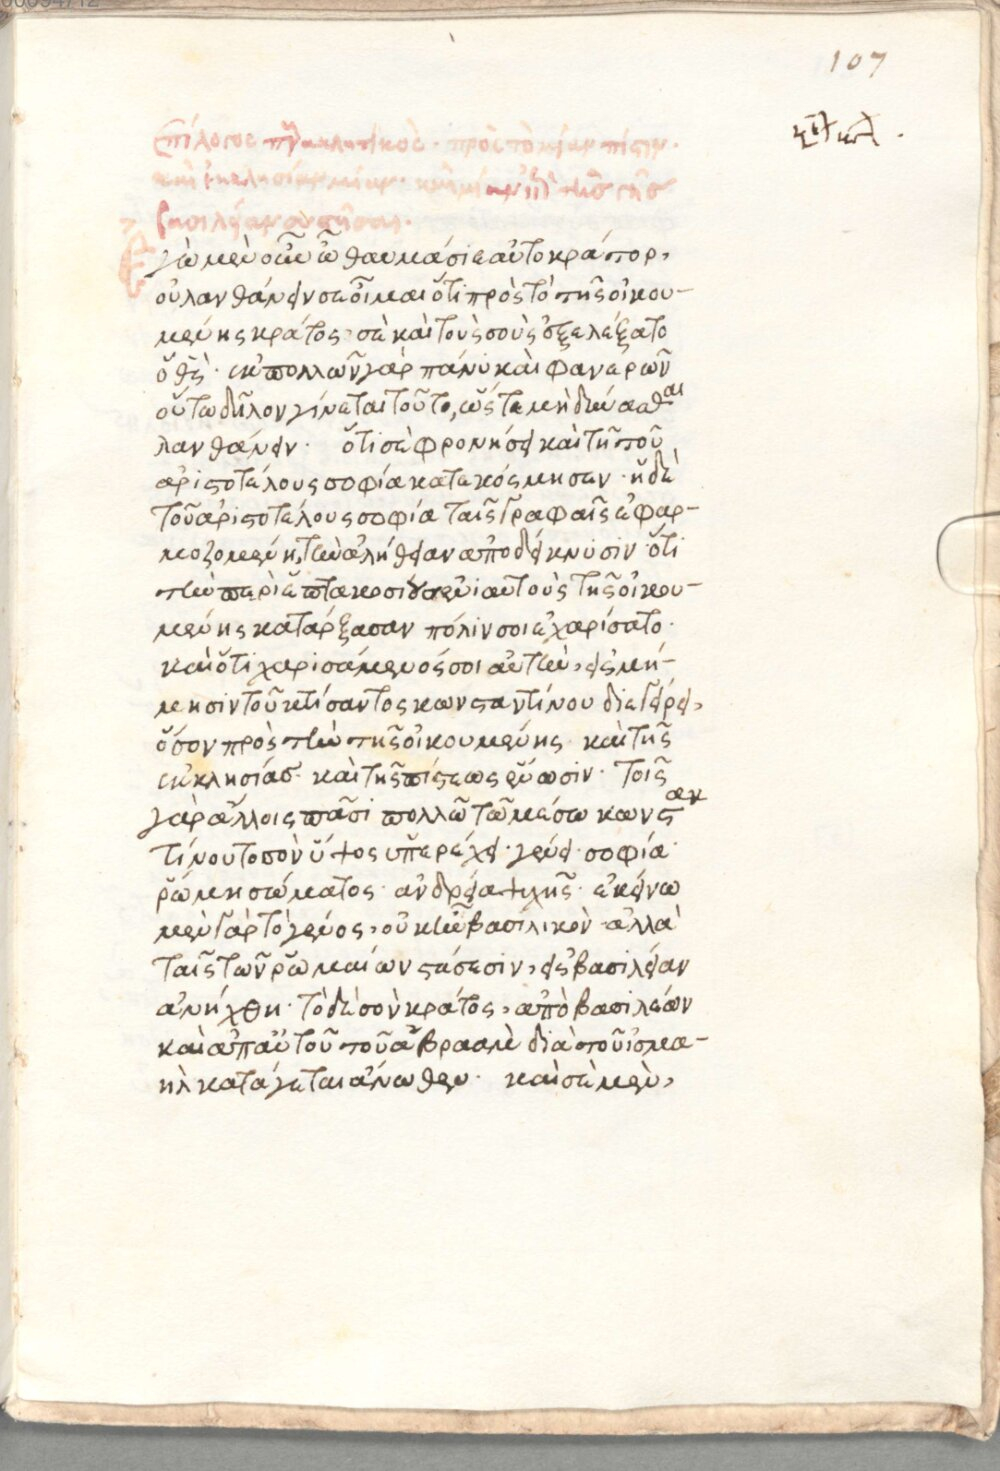 107
Ἐπίλογος παρακλητικὸς · πρὸς τὸ μίαν πίστιν ·
καὶ ἐκκλησίαν μίαν · καὶ μίαν ἐπὶ τῆς γῆς
βασιλείαν συστῆσαι ·
Ἐγὼ μὲν οὖν ὦ θαυμάσιε αὐτοκράτορ,
οὐ λανθάνειν σε οἶμαι ὅτι πρὸς τὸ τῆς οἰκου-
μένης κράτος · σὲ καὶ τοὺς σοὺς ἐξελέξατο
ὁ θς · ἐκ πολλῶν γὰρ πάνυ καὶ φανερῶν
οὕτω δῆλον γίνεται τοῦτο, ὥστε μὴ δύνασθαι
λανθάνειν · ὅτι σὲ φρονήσει καὶ τῇ τοῦ
ἀριστοτέλους σοφία κατεκόσμησεν · ἡ δὲ
τοῦ ἀριστοτέλους σοφία ταῖς γραφαῖς ἐφαρ-
μοζομένη, τὴν ἀλήθειαν ἀποδείκνυσιν · ὅτι
τὴν περὶ ἑπτακοσίους ἐνιαυτοὺς τῆς οἰκου-
μένης κατάρξασαν πόλιν σοι ἐχαρίσατο ·
καὶ ὅτι χαρισάμενός σοι αὐτὴν, εἰς μί-
μησιν τοῦ κτίσαντος κωνσταντίνου διεγείρει,
ὅσον πρὸς τὴν τῆς οἰκουμένης · καὶ τῆς
ἐκκλησίας · καὶ τῆς πίστεως ἕνωσιν · τοῖς
γὰρ ἄλλοις πᾶσι πολλῶ τῶ μέσω κωνσταν
τίνου τὸ σὸν ὕψος ὑπερέχει · γένει · σοφία ·
ῥώμη σώματος · ἀνδρεία ψυχῆς · ἐκείνω
μὲν γὰρ τὸ γένος, οὐκ ἦν βασιλικὸν · ἀλλὰ
ταῖς τῶν ῥωμαίων στάσεσιν, εἰς βασιλείαν
ἀνήχθη · τὸ δὲ σὸν κράτος, ἀπὸ βασιλέων
καὶ ἀπ' αὐτοῦ τοῦ ἀβραὰμ διὰ τοῦ ἰσμα-
ὴλ κατάγεται ἄνωθεν · καὶ σὲ μὲν,